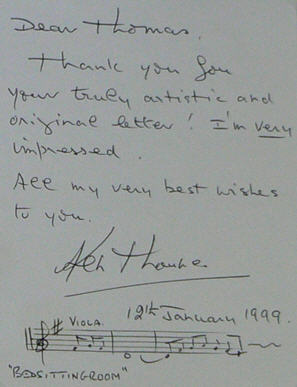 Dear Thomas,
Thank you for
your truly artistic and
original letter! I'm very
impressed.
All my very best wishes
to you.
Ken Thorne
VIOLA. 12th January 1999.
"BEDSITTINGROOM"